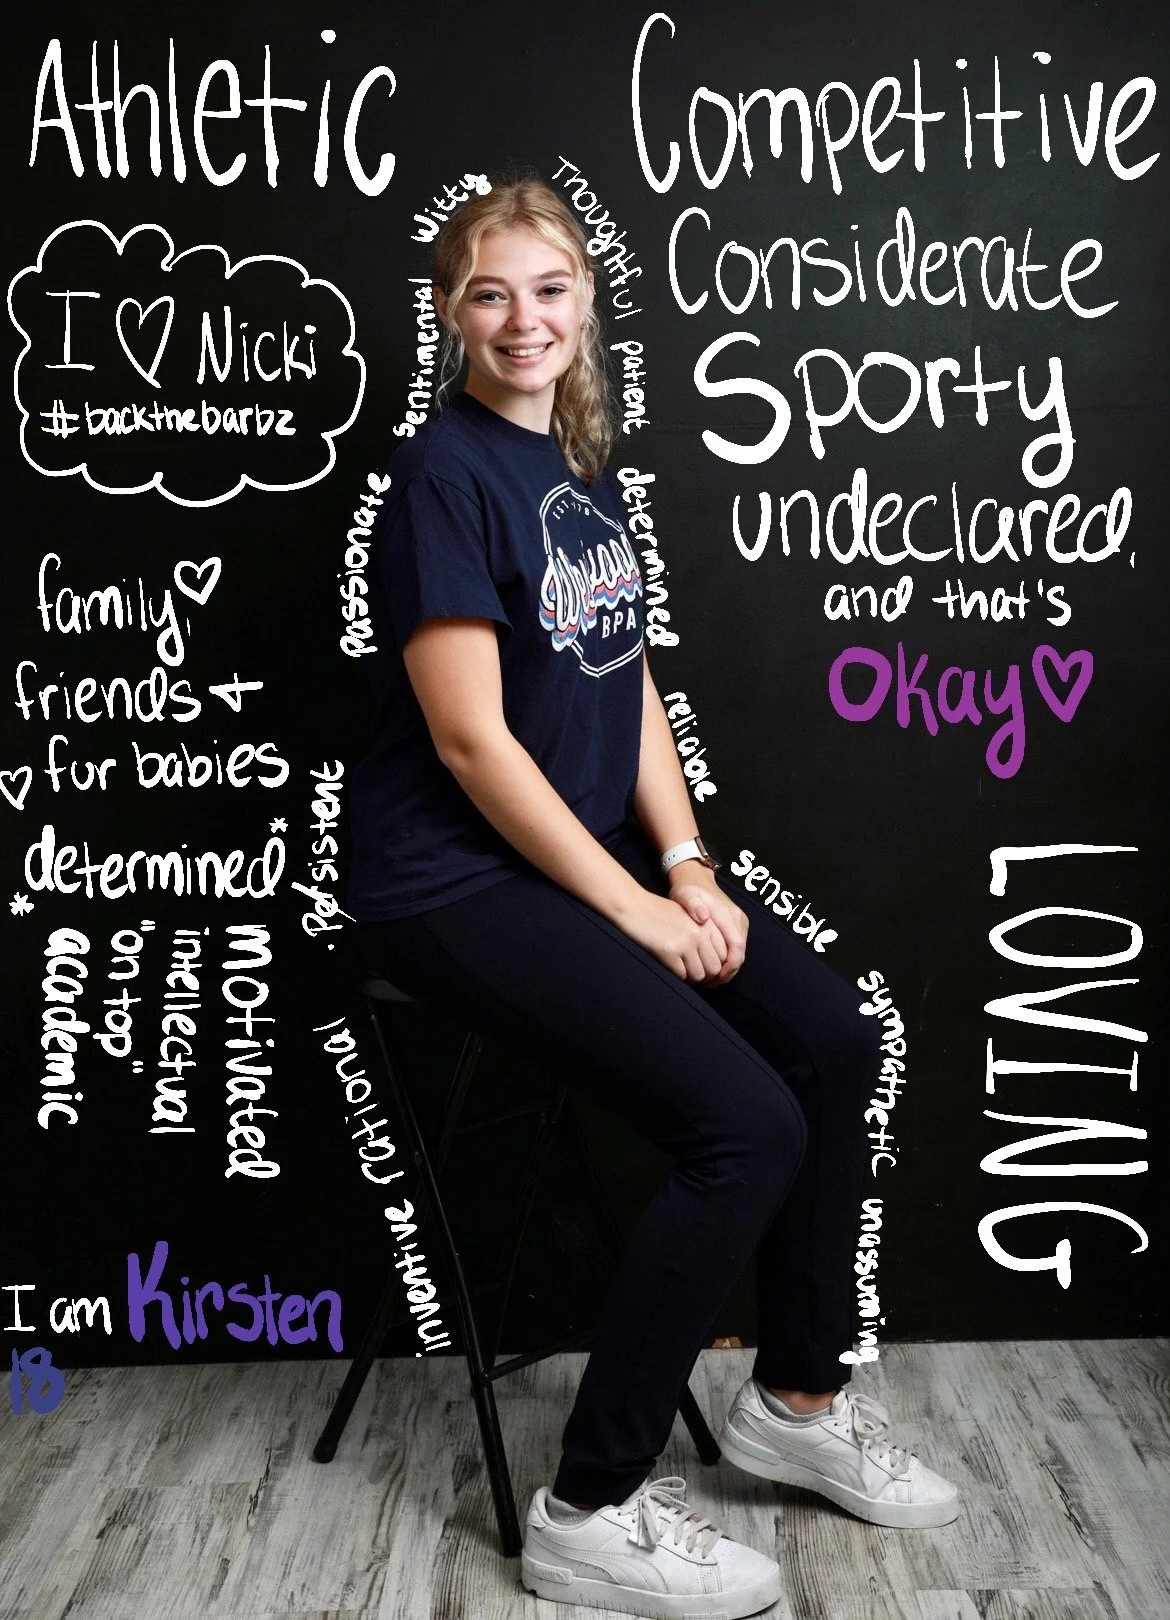 Athletic
Competitive
Considerate
Sporty
undeclared,
and that's
Okay
LOVING
I ♡ Nicki
#backthebarbz
family,
friends +
fur babies
*determined*
motivated
intellectual
"on top"
academic
I am Kirsten
18
witty
sentimental
passionate
persistent
rational
inventive
Thoughtful
patient
determined
reliable
sensible
sympathetic
unassuming
EST.
BPA